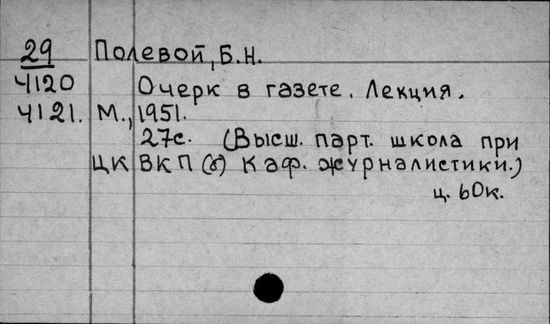 29 Полевой, Б.Н.
Ч120 Очерк в газете. Лекция.
Ч121. М., 1951.
27с. (Высш. парт. школа при
ЦК ВКП(б) Каф. журналистики.)
ц. 60к.